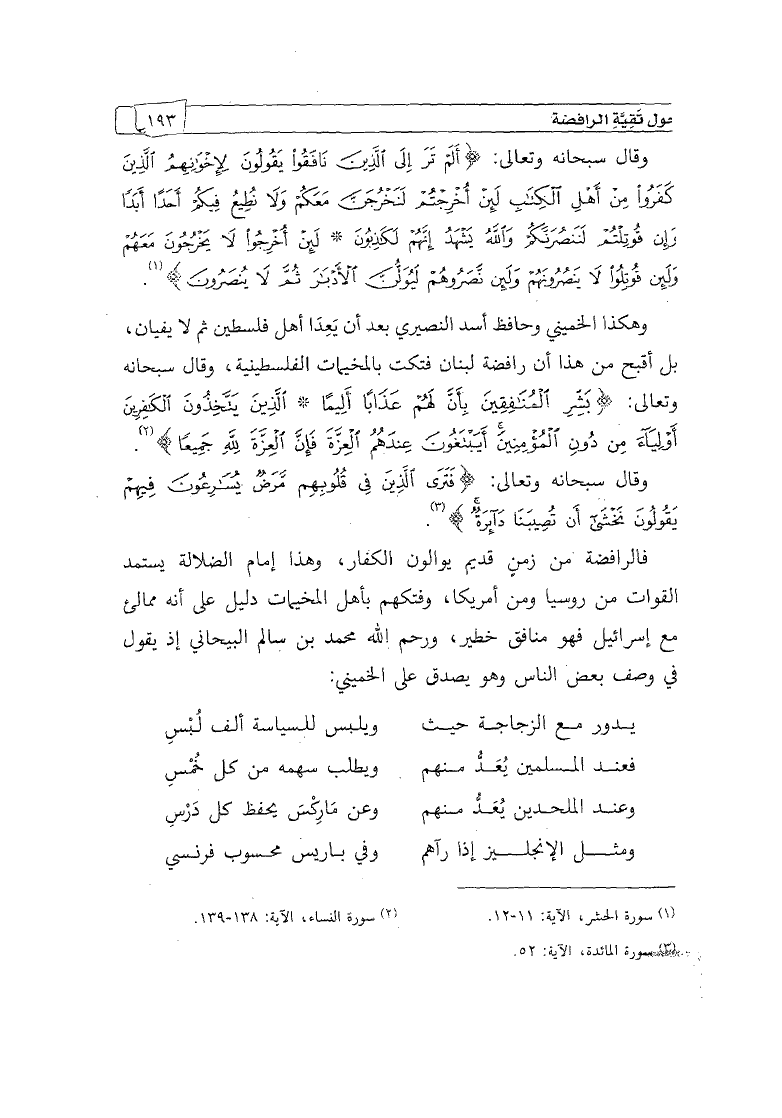 حول تَقِيَّةِ الرافضة ١٩٣
وقال سبحانه وتعالى: ﴿ أَلَمْ تَرَ إِلَى ٱلَّذِينَ نَافَقُوا۟ يَقُولُونَ لِإِخْوَٰنِهِمُ ٱلَّذِينَ
كَفَرُوا۟ مِنْ أَهْلِ ٱلْكِتَٰبِ لَئِنْ أُخْرِجْتُمْ لَنَخْرُجَنَّ مَعَكُمْ وَلَا نُطِيعُ فِيكُمْ أَحَدًا أَبَدًا
وَإِن قُوتِلْتُمْ لَنَنصُرَنَّكُمْ وَٱللَّهُ يَشْهَدُ إِنَّهُمْ لَكَٰذِبُونَ * لَئِنْ أُخْرِجُوا۟ لَا يَخْرُجُونَ مَعَهُمْ
وَلَئِن قُوتِلُوا۟ لَا يَنصُرُونَهُمْ وَلَئِن نَّصَرُوهُمْ لَيُوَلُّنَّ ٱلْأَدْبَٰرَ ثُمَّ لَا يُنصَرُونَ ﴾ (١).
وهكذا الخميني وحافظ أسد النصيري بعد أن يَعِدَا أهل فلسطين ثم لا يفيان،
بل أقبح من هذا أن رافضة لبنان فتكت بالمخيمات الفلسطينية، وقال سبحانه
وتعالى: ﴿ بَشِّرِ ٱلْمُنَٰفِقِينَ بِأَنَّ لَهُمْ عَذَابًا أَلِيمًا * ٱلَّذِينَ يَتَّخِذُونَ ٱلْكَٰفِرِينَ
أَوْلِيَآءَ مِن دُونِ ٱلْمُؤْمِنِينَ ۚ أَيَبْتَغُونَ عِندَهُمُ ٱلْعِزَّةَ فَإِنَّ ٱلْعِزَّةَ لِلَّهِ جَمِيعًا ﴾ (٢).
وقال سبحانه وتعالى: ﴿ فَتَرَى ٱلَّذِينَ فِى قُلُوبِهِم مَّرَضٌ يُسَٰرِعُونَ فِيهِمْ
يَقُولُونَ نَخْشَىٰٓ أَن تُصِيبَنَا دَآئِرَةٌ ۚ ﴾ (٣).
فالرافضة من زمنٍ قديم يوالون الكفار، وهذا إمام الضلالة يستمد
القوات من روسيا ومن أمريكا، وفتكهم بأهل المخيمات دليل على أنه ممالئ
مع إسرائيل فهو منافق خطير، ورحم الله محمد بن سالم البيحاني إذ يقول
في وصف بعض الناس وهو يصدق على الخميني:
يدور مع الزجاجة حيث ويلبس للسياسة ألف لُبْسِ
فعند المسلمين يُعَدُّ منهم ويطلب سهمه من كل خُمْسِ
وعند الملحدين يُعَدُّ منهم وعن مَارِكْسَ يحفظ كل دَرْسِ
ومثل الإنجليز إذا رآهم وفي باريس محسوب فرنسي
(١) سورة الحشر، الآية: ١١-١٢.
(٢) سورة النساء، الآية: ١٣٨-١٣٩.
(٣) سورة المائدة، الآية: ٥٢.